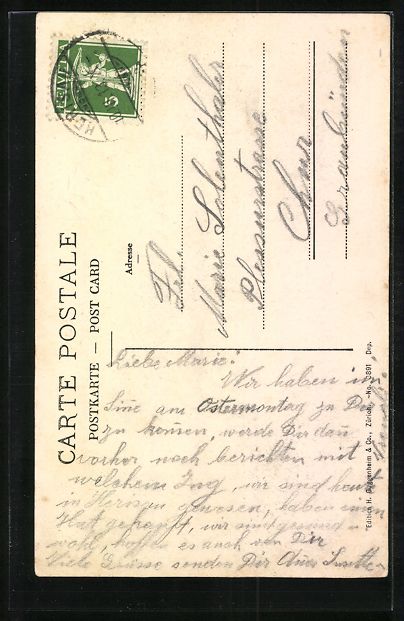 HELVETIA
5
CARTE POSTALE
POSTKARTE – POST CARD
Adresse
Frl.
Marie
Plessurstrasse
Chur
Graubünden
Liebe Marie!
Wir haben im
Sinne am Ostermontag zu Dir
zu kommen, werde Dir dan
vorher noch berichten mit
welchem Zug, wir sind heute
in Herisau gewesen, haben einen
Hut gekauft, wir sind gesund
wohl, hoffen es auch von Dir
Viele Grüsse senden Dir
Edition H. Guggenheim & Co., Zürich. Dep.